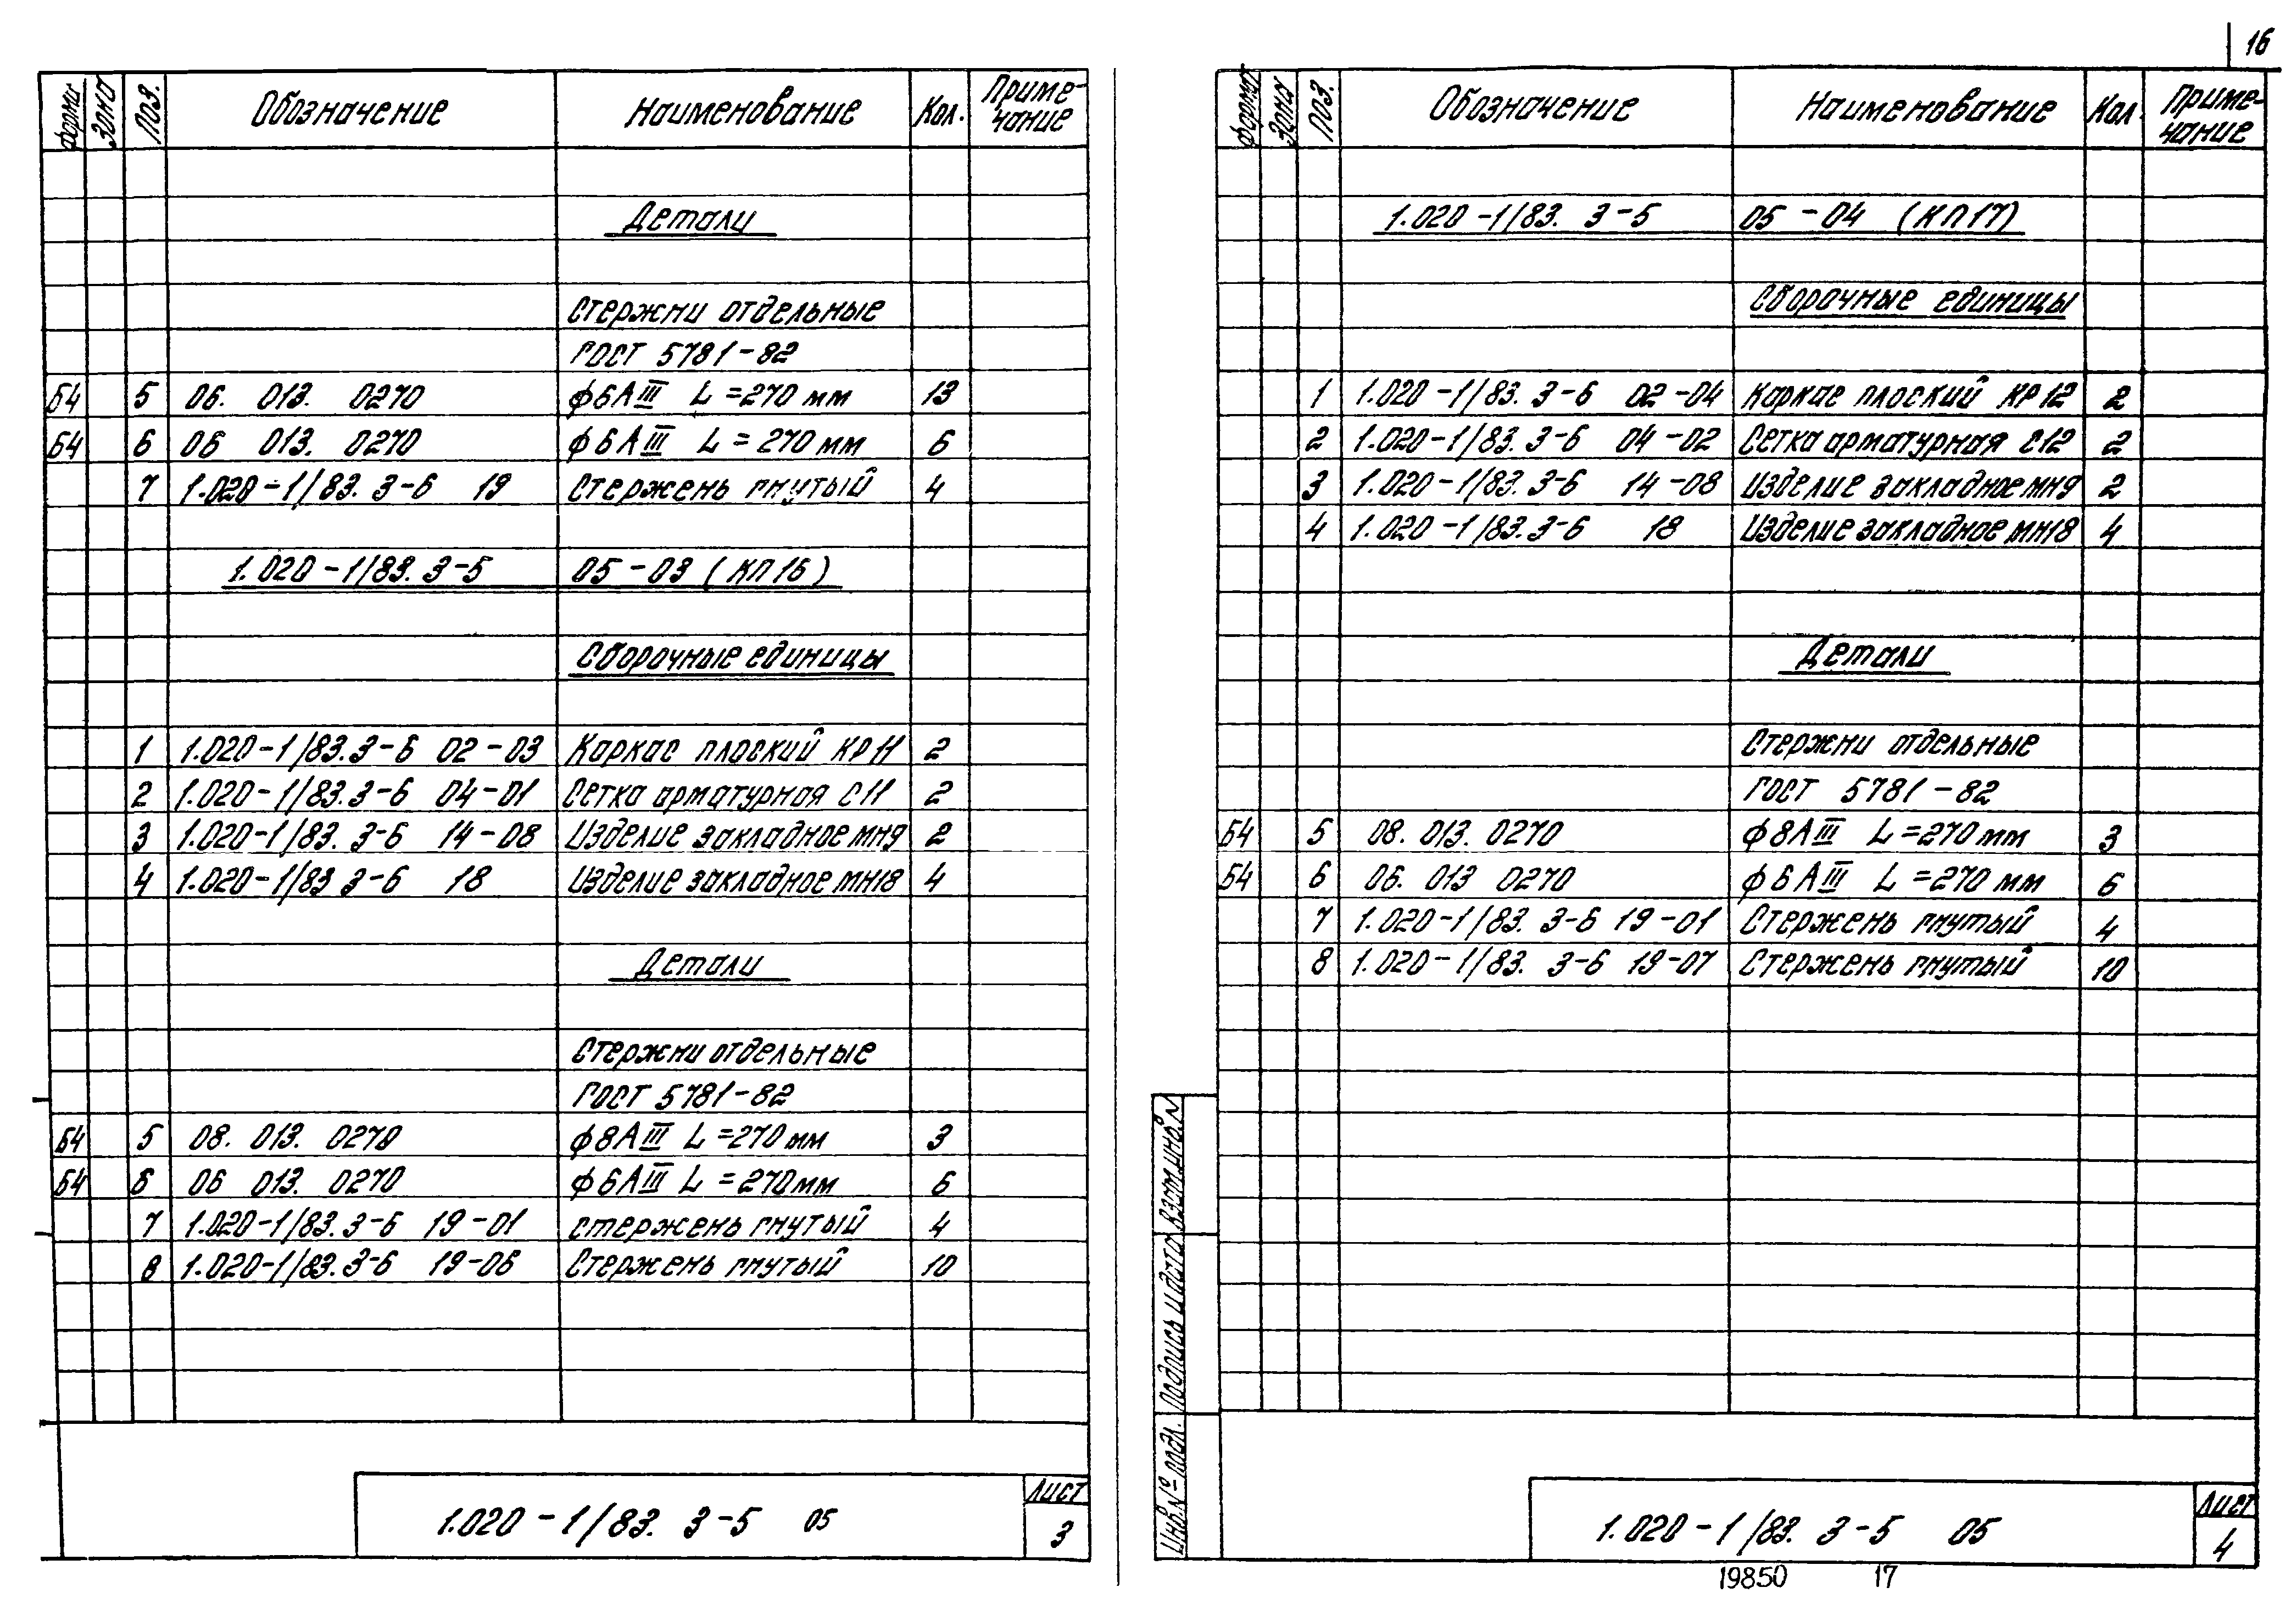 16
Форма Зона Поз. Обозначение Наименование Кол. Приме-
чание
Детали
Стержни отдельные
ГОСТ 5781-82
Б4 5 06. 013. 0270 ф6АIII L=270 мм 13
Б4 6 06 013. 0270 ф6АIII L=270 мм 6
7 1.020-1/83. 3-6 19 Стержень гнутый 4
1.020-1/83. 3-5 05-03 (КП16)
Сборочные единицы
1 1.020-1/83.3-6 02-03 Каркас плоский КР11 2
2 1.020-1/83.3-6 04-01 Сетка арматурная С11 2
3 1.020-1/83. 3-6 14-08 Изделие закладное МН9 2
4 1.020-1/83 3-6 18 Изделие закладное МН18 4
Детали
Стержни отдельные
ГОСТ 5781-82
Б4 5 08. 013. 0270 ф8АIII L=270 мм 3
Б4 6 06 013. 0270 ф6АIII L=270мм 6
7 1.020-1/83.3-6 19-01 стержень гнутый 4
8 1.020-1/83.3-6 19-06 Стержень гнутый 10
1.020-1/83. 3-5 05
Лист
3
Форма Зона Поз. Обозначение Наименование Кол. Приме-
чание
1.020-1/83. 3-5 05-04 (КП17)
Сборочные единицы
1 1.020-1/83. 3-6 02-04 Каркас плоский КР12 2
2 1.020-1/83. 3-6 04-02 Сетка арматурная С12 2
3 1.020-1/83. 3-6 14-08 Изделие закладное МН9 2
4 1.020-1/83.3-6 18 Изделие закладное МН18 4
Детали
Стержни отдельные
ГОСТ 5781-82
Б4 5 08. 013. 0270 ф8АIII L=270 мм 3
Б4 6 06. 013 0270 ф6АIII L=270 мм 6
7 1.020-1/83. 3-6 19-01 Стержень гнутый 4
8 1.020-1/83. 3-6 19-07 Стержень гнутый 10
Инв.№ подл. Подпись и дата Взам.инв.№
1.020-1/83. 3-5 05
Лист
4
19850 17